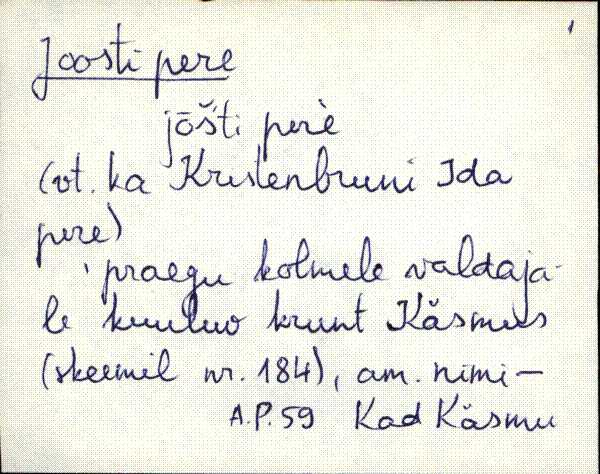 1
Joosti pere
jōš́ti perè
(vt. ka Kristenbruni Ida
pere)
'praegu kolmele valdaja-
le kuuluv krunt Käsmus
(skeemil nr. 184), am. nimi —
A.P. 59 Kad Käsmu